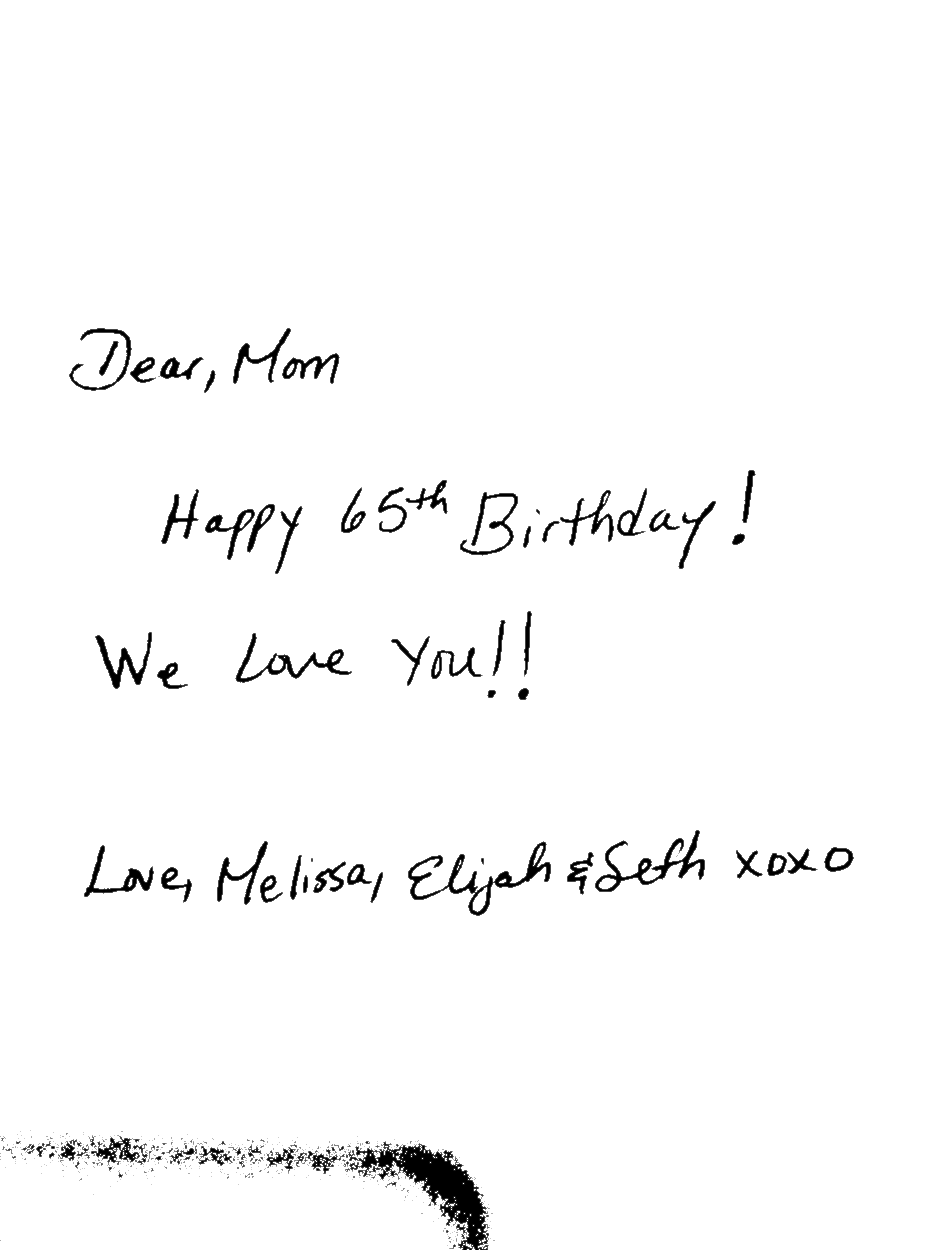 Dear, Mom
Happy 65th Birthday!
We Love You!!
Love, Melissa, Elijah & Seth xoxo